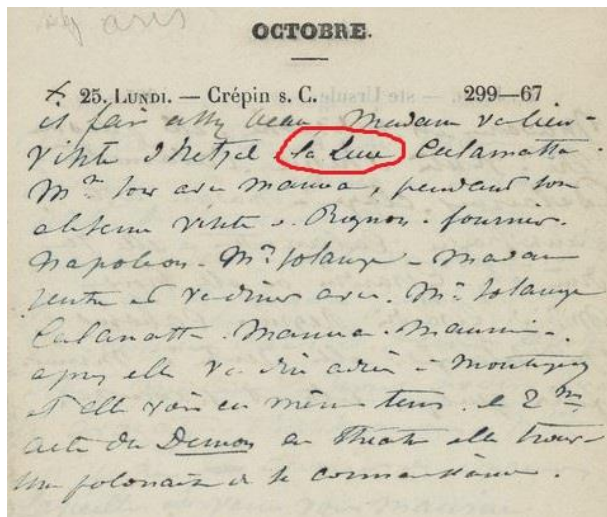 OCTOBRE.
25. LUNDI. — Crépin s. C. 299—67
il fait assez beau. Madame va bien.
visite d'Hetzel. la Lune Calamatta.
Mme sort avec Manceau, pendant son
absence visite de Bignon. fournier.
Napoléon. Me Solange - Madame
rentre et va diner avec Me Solange
Calamatta. Manceau. Maurice.
après elle va dire adieu à Montigny
et elle voit en même tems le 2me
acte du Demon au théatre elle trouve
un polonais de sa connaissance.